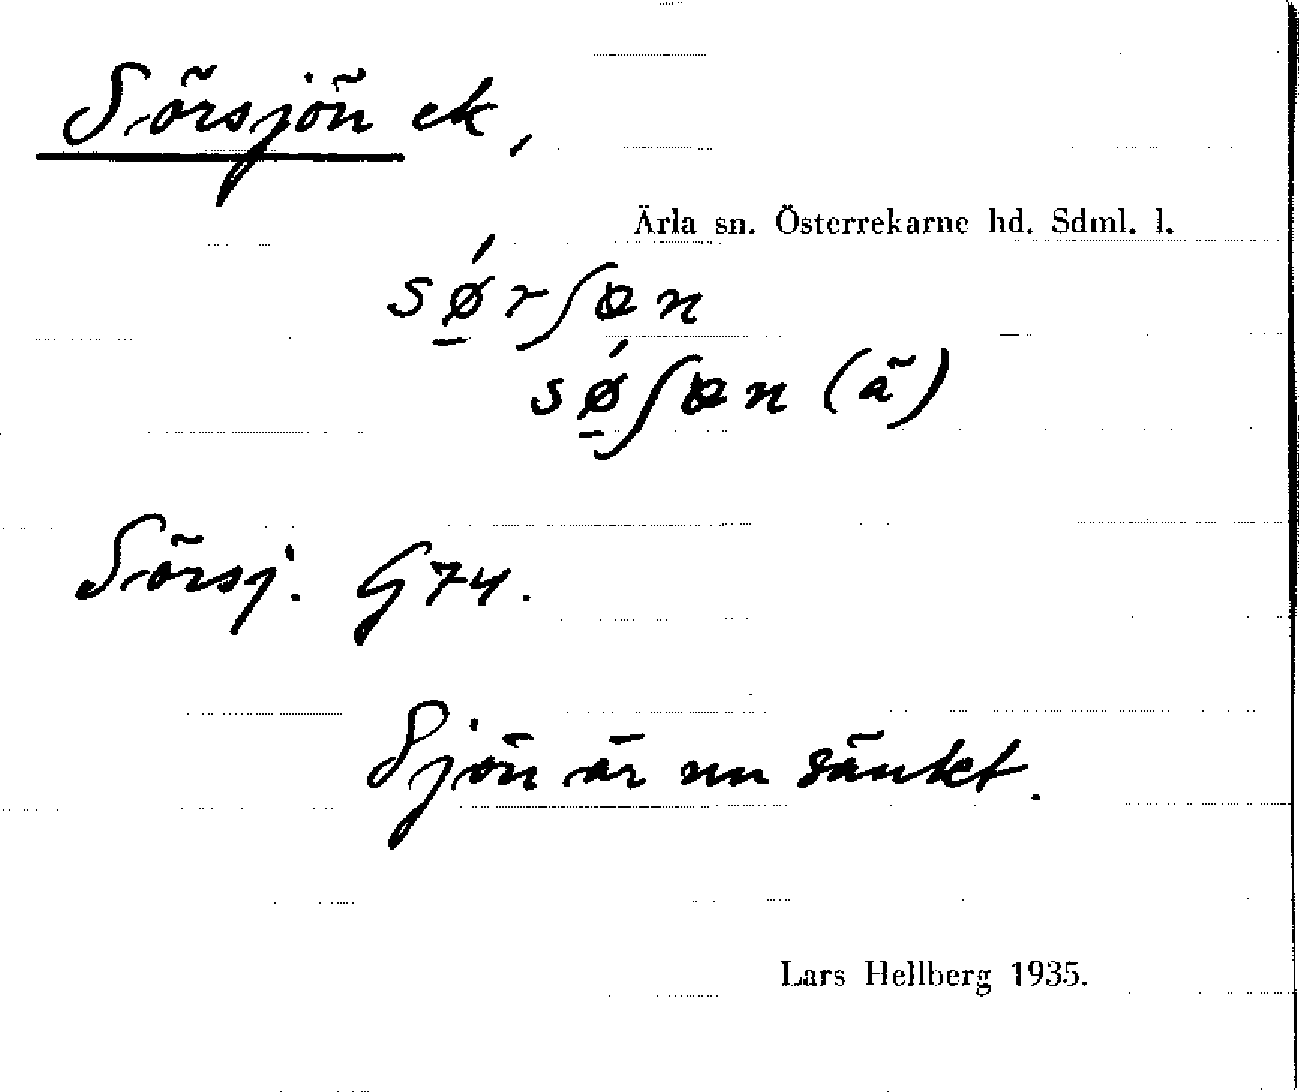 Sörsjön ek,
Ärla sn. Österrekarne hd. Sdml. l.
sǿ̱rʃɵn
sǿ̱ʃɵn (ä)
Sörsj. G74.
Sjön är nu sänkt.
Lars Hellberg 1935.